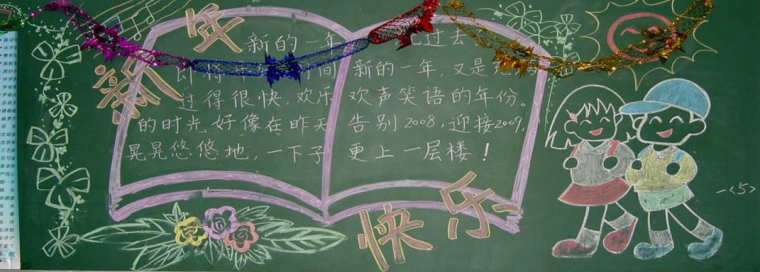 新年
新的一年 过去
即将 时间 新的一年,又是
过得很快,欢乐 欢声笑语的年份。
的时光,好像在昨天 告别2008,迎接2009,
晃晃悠悠地,一下子 更上一层楼!
快乐
一〈5〉